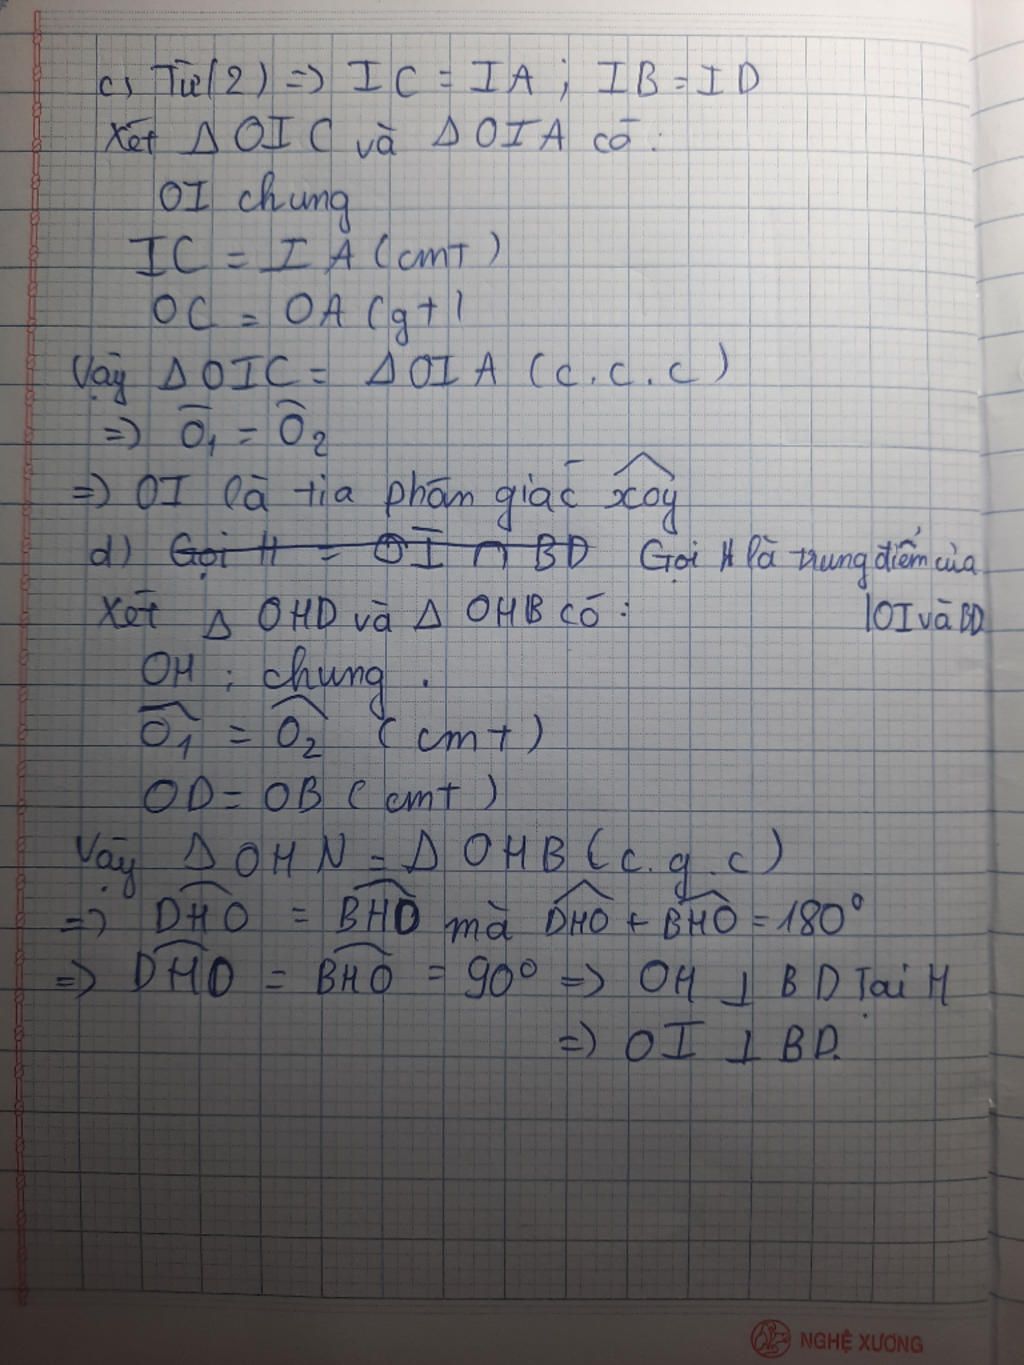 c) Từ (2) => IC = IA ; IB = ID
Xét Δ OIC và Δ OIA có :
OI chung
IC = IA (cmt)
OC = OA (gt)
Vậy Δ OIC = Δ OIA (c.c.c)
=> Ô₁ = Ô₂
=> OI là tia phân giác x̂oy
d) Gọi H = OI ∩ BD Gọi H là trung điểm của
OI và BD
Xét Δ OHD và Δ OHB có :
OH : chung .
Ô₁ = Ô₂ (cmt)
OD = OB (cmt)
Vậy Δ OHN = Δ OHB (c.g.c)
=> DHO = BHO mà DHO + BHO = 180°
=> DHO = BHO = 90° => OH ⊥ BD Tại H
=> OI ⊥ BD.
NGHỆ XƯƠNG